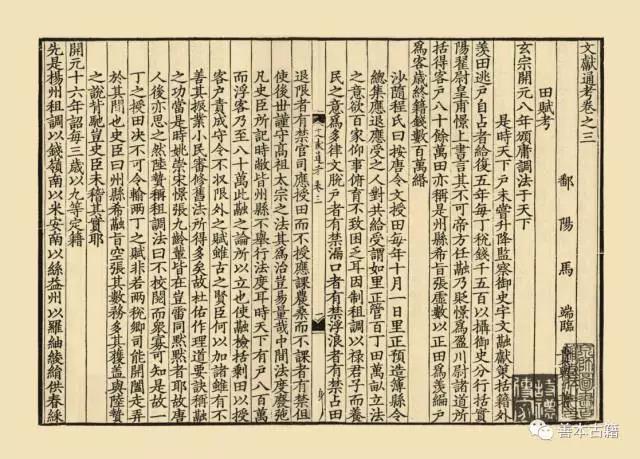 文獻通考卷之三
鄱陽馬端臨
田賦考
玄宗開元八年頒庸調法于天下
是時天下戶未嘗升降監察御史宇文融獻策括籍外
羨田逃戶自占者給復五年每丁稅錢千五百以攝御史分行括實
陽翟尉皇甫憬上書言其不可帝方任融乃貶憬為盈川尉諸道所
括得客戶八十餘萬田亦稱是州縣希旨張虛數以正田為羨編戶
為客歲終籍錢數百萬緡
沙隨程氏曰按唐令文授田每年十月一日里正預造簿縣令
總集應退應受之人對共給受謂如里正管百丁田萬畝立法
之意欲百家仰事俯育不致困乏耳因制租調以祿君子而養
民之意為多律文脫戶者有禁漏口者有禁浮浪者有禁占田
退限者有禁官司應授而不授應課農桑而不課者有禁但
使後世謹守高祖太宗之法其為治豈易量哉中間法度廢弛
凡史臣所記時敝皆州縣不舉行法度耳時天下有戶八百萬
而浮客乃至八十萬此融之論所以立也使融檢括剩田以授
客戶責成守令不收限外之賦雖古之賢臣何以加諸雖有不
善其振業小民審修舊法所得多矣故杜佑作理道要訣稱融
之功當是時姚崇宋憬張九齡輩皆在豈雷同默默者耶故唐
人後亦思之然陸贄稱租調法曰不校閱而衆寡可知是故一
丁之授田決不可令輸兩丁之賦非若兩稅鄉司能開闔走弄
於其間也史臣曰州縣希融旨空張其數務多其獲蓋與陸贄
之說背馳豈史臣未稽其實耶
開元十六年詔每三歲以九等定籍
先是楊州租調以錢嶺南以米安南以絲益州以羅紬綾絹供春綵
文獻通考 卷三
善本古籍